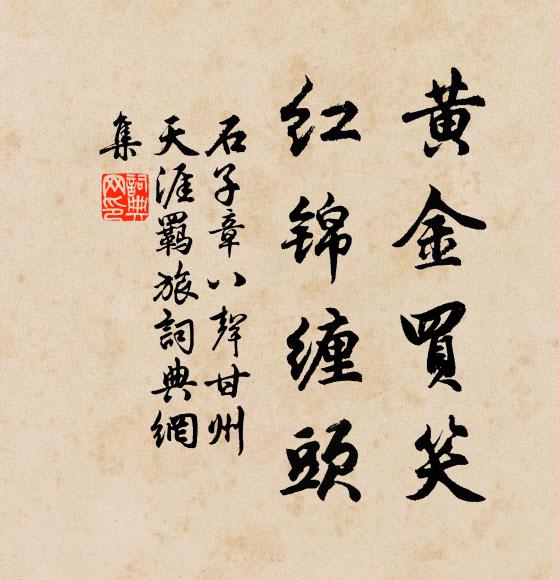 黄金買笑
红锦缠頭
石子章八聲甘州
天涯羈旅詞典網
集
詞典網印